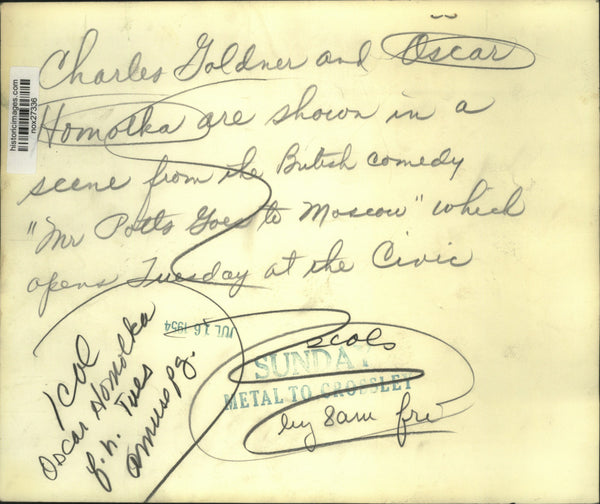 Charles Goldner and Oscar
Homolka are shown in a
scene from the British comedy
"Mr Potts Goes to Moscow" which
opens Tuesday at the Civic
historicimages.com
nox27336
JUL 16 1954
1 col
Oscar Homolka
f.h. Tues
amus pg.
2 cols
SUNDAY
METAL TO CROSSLEY
by 8am fri